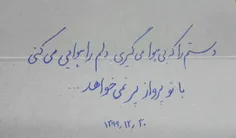 دستم را که بی هوا می گیری، دلم را هوایی می کنی
با تو پرواز پر نمی خواهد ...
۱۳۹۹,۱۲,۲۰